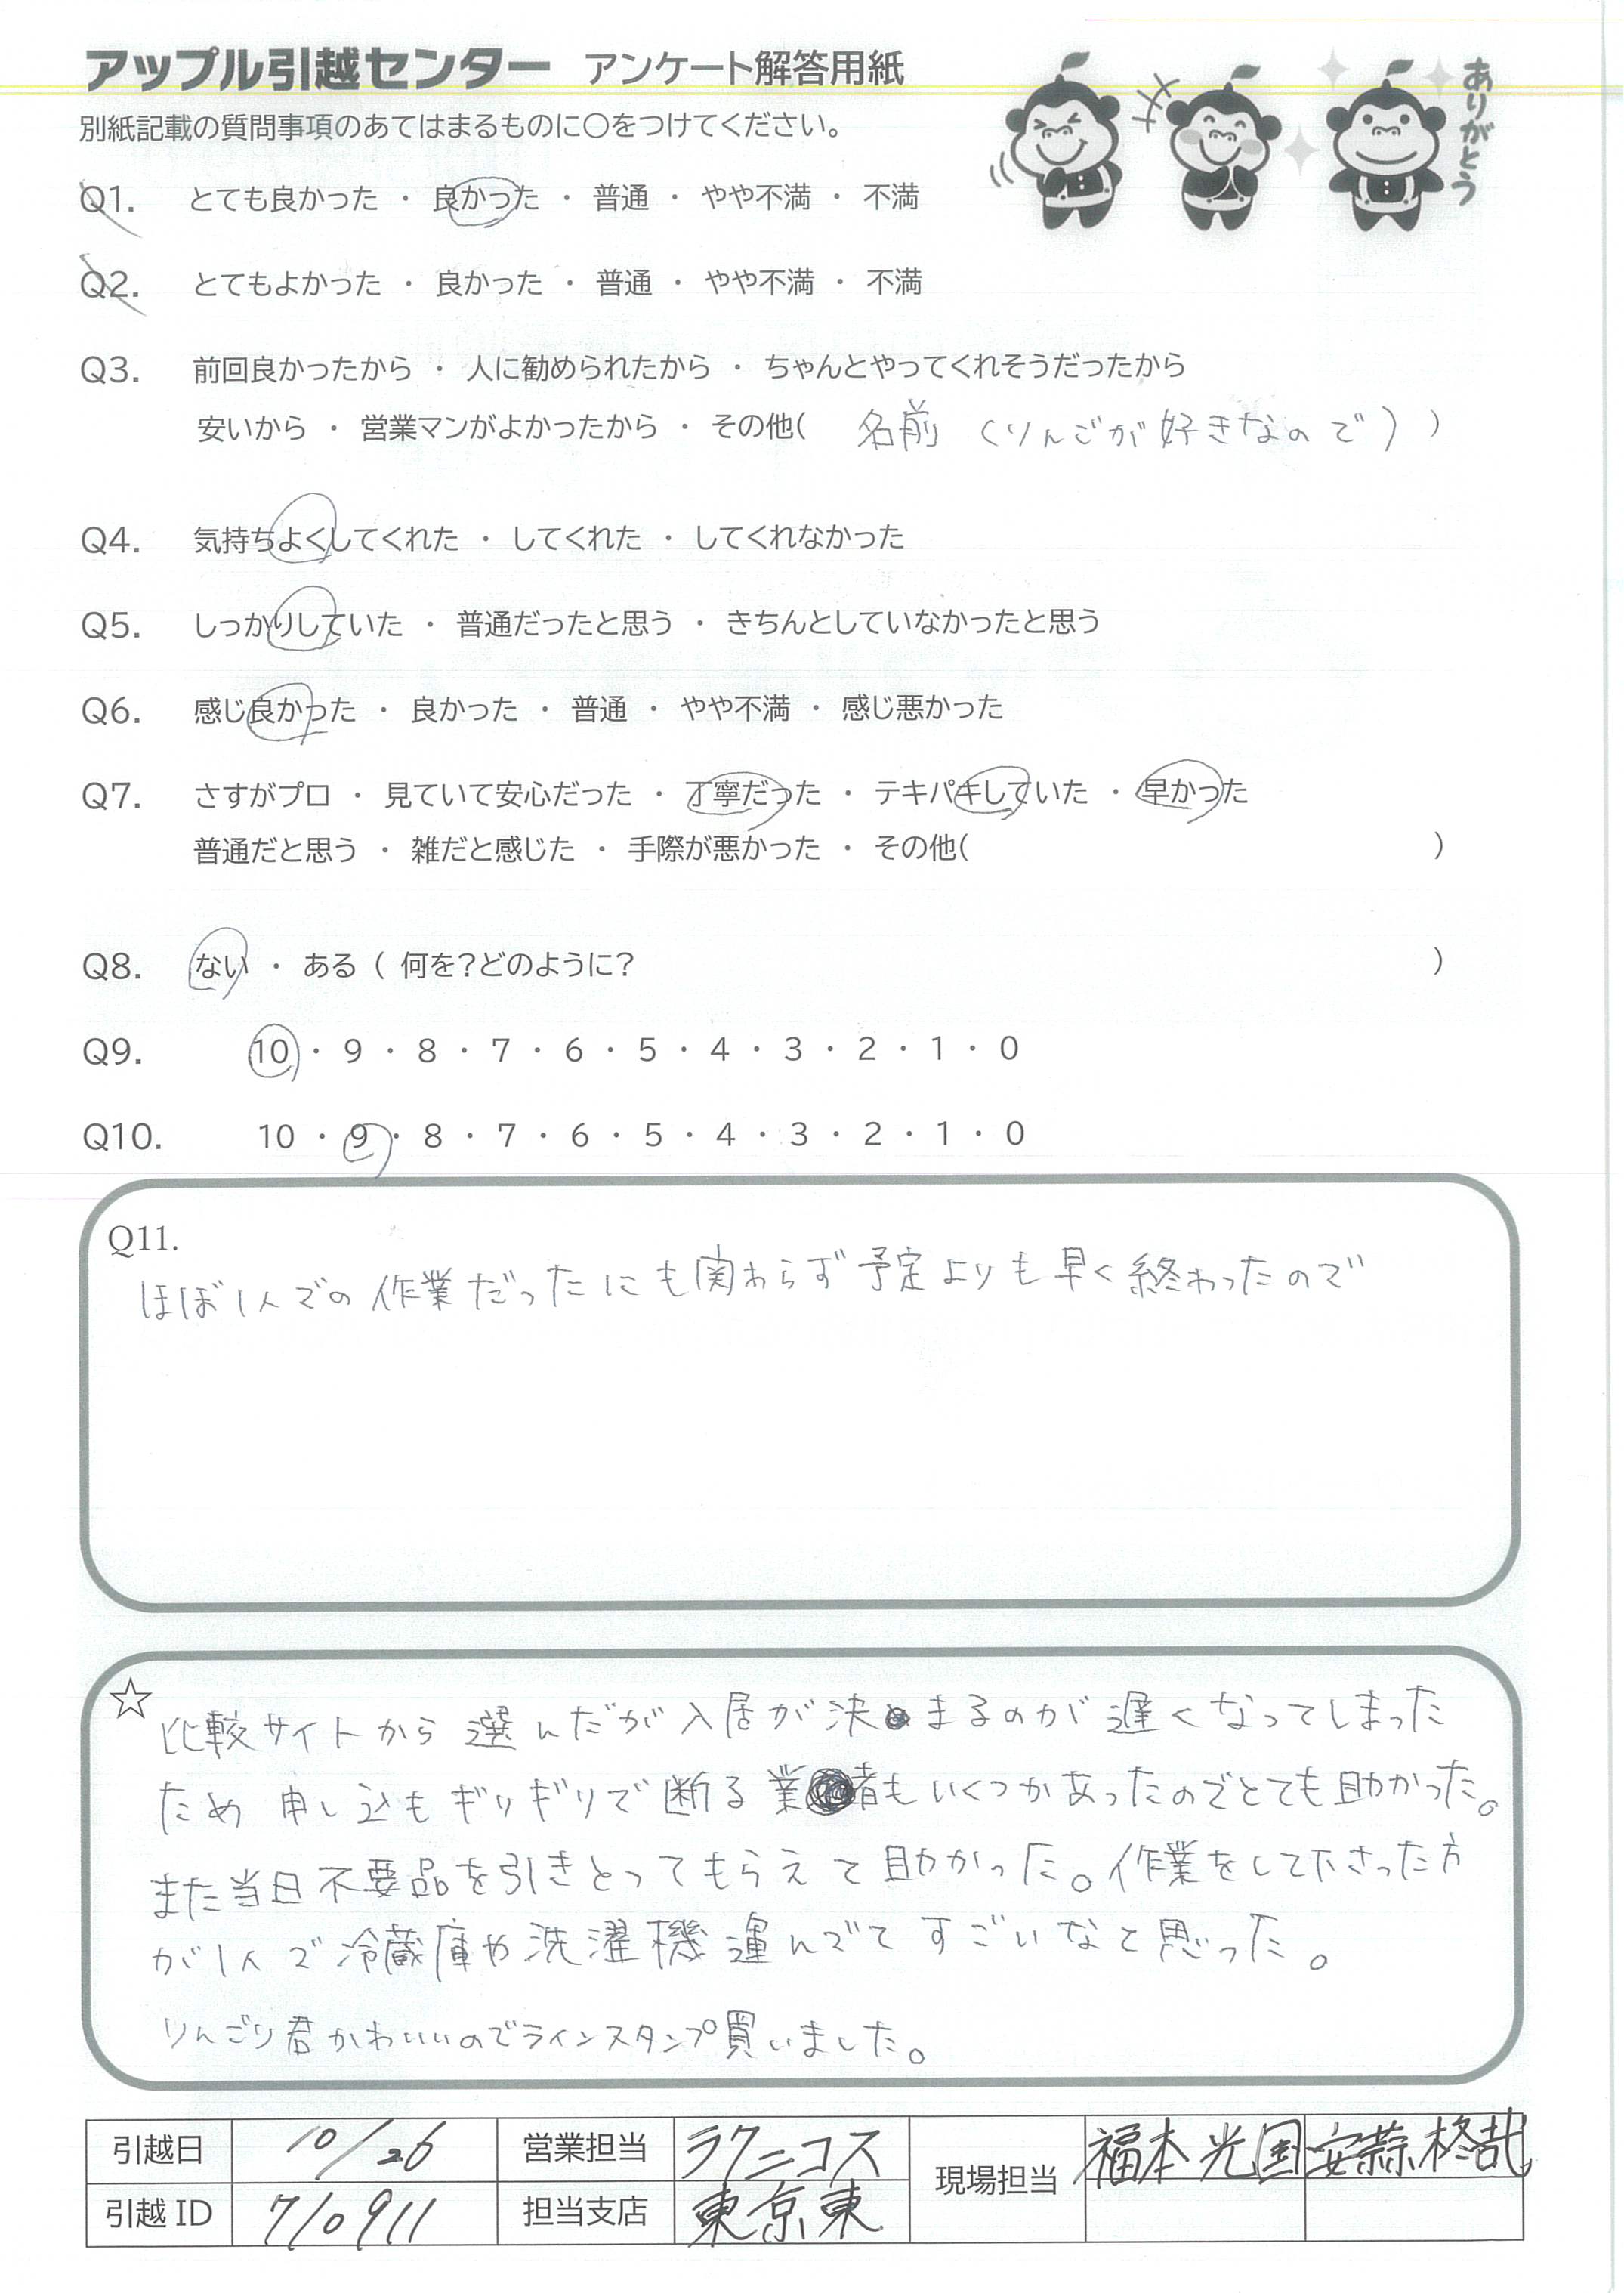 アップル引越センター アンケート解答用紙
ありがとう
別紙記載の質問事項のあてはまるものに○をつけてください。
Q1. とても良かった ・ 良かった ・ 普通 ・ やや不満 ・ 不満
Q2. とてもよかった ・ 良かった ・ 普通 ・ やや不満 ・ 不満
Q3. 前回良かったから ・ 人に勧められたから ・ ちゃんとやってくれそうだったから
安いから ・ 営業マンがよかったから ・ その他( 名前 (りんごが好きなので) )
Q4. 気持ちよくしてくれた ・ してくれた ・ してくれなかった
Q5. しっかりしていた ・ 普通だったと思う ・ きちんとしていなかったと思う
Q6. 感じ良かった ・ 良かった ・ 普通 ・ やや不満 ・ 感じ悪かった
Q7. さすがプロ ・ 見ていて安心だった ・ 丁寧だった ・ テキパキしていた ・ 早かった
普通だと思う ・ 雑だと感じた ・ 手際が悪かった ・ その他( )
Q8. ない ・ ある ( 何を?どのように? )
Q9. 10 ・ 9 ・ 8 ・ 7 ・ 6 ・ 5 ・ 4 ・ 3 ・ 2 ・ 1 ・ 0
Q10. 10 ・ 9 ・ 8 ・ 7 ・ 6 ・ 5 ・ 4 ・ 3 ・ 2 ・ 1 ・ 0
Q11.
ほぼ1人での作業だったにも関わらず予定よりも早く終わったので
☆
比較サイトから選んだが入居が決まるのが遅くなってしまった
ため 申し込もギリギリで断る業者もいくつかあったのでとても助かった。
また当日不要品を引きとってもらえて助かった。作業をして下さった方
が1人で冷蔵庫や洗濯機運んでて すごいなと思った。
りんごり君かわいいのでラインスタンプ買いました。
引越日 10/26 営業担当 ラクニコス 現場担当 福本光国 安蒜柊哉
引越ID 710911 担当支店 東京東